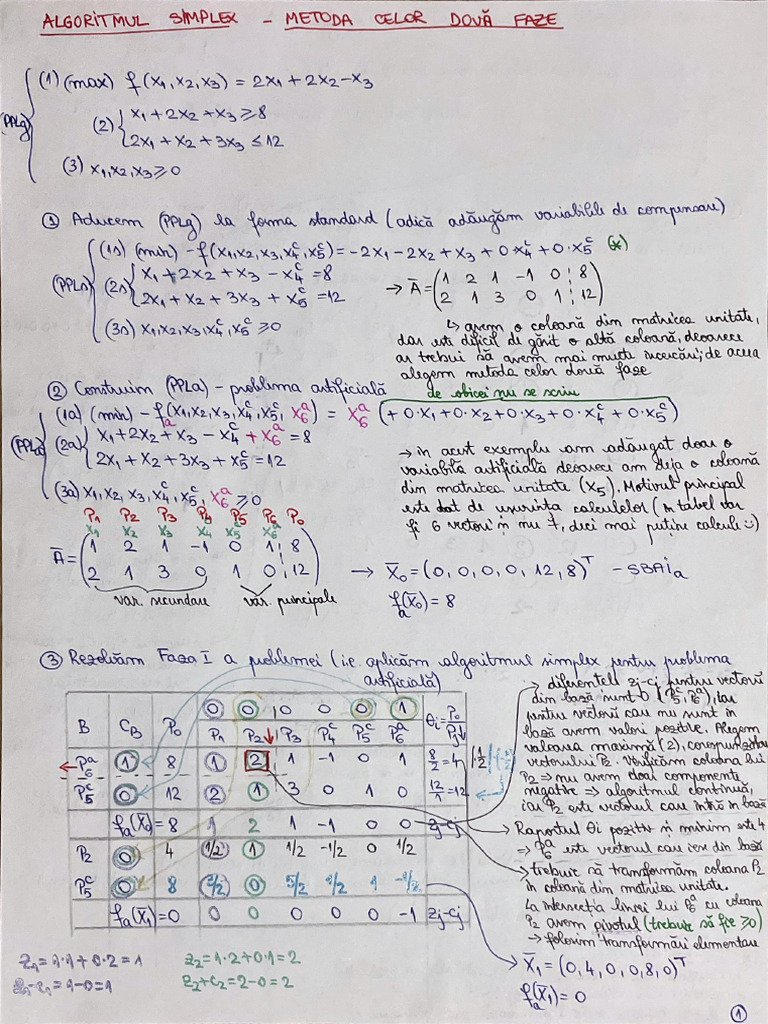 ALGORITMUL SIMPLEX - METODA CELOR DOUĂ FAZE
(PPLg) (1) (max) f(x₁,x₂,x₃) = 2x₁+2x₂-x₃
(2) x₁+2x₂+x₃ ≥ 8
2x₁+x₂+3x₃ ≤ 12
(3) x₁,x₂,x₃ ≥ 0
① Aducem (PPLg) la forma standard (adică adăugăm variabilele de compensare)
(PPLs) (1s) (min) -f(x₁,x₂,x₃,x₄ᶜ,x₅ᶜ) = -2x₁-2x₂+x₃+0·x₄ᶜ+0·x₅ᶜ (*)
(2s) x₁+2x₂+x₃-x₄ᶜ = 8
2x₁+x₂+3x₃+x₅ᶜ = 12
(3s) x₁,x₂,x₃,x₄ᶜ,x₅ᶜ ≥ 0
→ Ā = (1 2 1 -1 0 ¦ 8
2 1 3 0 1 ¦ 12)
↳ avem o coloană din matricea unitate,
dar este dificil de găsit o altă coloană, deoarece
ar trebui să avem mai multe încercări; de aceea
alegem metoda celor două faze
② Construim (PPLa) - problema artificială
de obicei nu se scriu
(PPLa) (1a) (min) -fₐ(x₁,x₂,x₃,x₄ᶜ,x₅ᶜ,x₆ᵃ) = x₆ᵃ (+0·x₁+0·x₂+0·x₃+0·x₄ᶜ+0·x₅ᶜ)
(2a) x₁+2x₂+x₃-x₄ᶜ+x₆ᵃ = 8
2x₁+x₂+3x₃+x₅ᶜ = 12
(3a) x₁,x₂,x₃,x₄ᶜ,x₅ᶜ,x₆ᵃ ≥ 0
→ în acest exemplu am adăugat doar o
variabilă artificială deoarece am deja o coloană
din matricea unitate (x₅). Motivul principal
este dat de ușurința calculelor (în tabel vor
fi 6 vectori și nu 7, deci mai puține calcule :))
P₁ P₂ P₃ P₄ P₅ P₆ P₀
x₁ x₂ x₃ x₄ᶜ x₅ᶜ x₆ᵃ
Ā = (1 2 1 -1 0 1 ¦ 8
2 1 3 0 1 0 ¦ 12)
var. secundare var. principale
→ X̄₀ = (0, 0, 0, 0, 12, 8)ᵀ - SBAiₐ
fₐ(X̄₀) = 8
③ Rezolvăm Faza I a problemei (i.e. aplicăm algoritmul simplex pentru problema
artificială)
0 0 0 0 0 1
B C_B P₀ P₁ P₂ P₃ P₄ᶜ P₅ᶜ P₆ᵃ θᵢ = P₀/Pⱼ
P₆ᵃ 1 8 1 2 1 -1 0 1 8/2=4 |·1/2
P₅ᶜ 0 12 2 1 3 0 1 0 12/1=12
fₐ(X̄₀) = 8 1 2 1 -1 0 0 zj-cj
P₂ 0 4 1/2 1 1/2 -1/2 0 1/2
P₅ᶜ 0 8 3/2 0 5/2 1/2 1 -1/2
fₐ(X̄₁) = 0 0 0 0 0 0 -1 zj-cj
→ diferențele zj-cj pentru vectorii
din bază sunt 0 (P₅ᶜ, P₆ᵃ), iar
pentru vectorii care nu sunt în
bază avem valori pozitive. Alegem
valoarea maximă (2), corespunzătoare
vectorului P₂. Verificăm coloana lui
P₂ → nu avem doar componente
negative → algoritmul continuă,
iar P₂ este vectorul care intră în bază
→ Raportul θi pozitiv și minim este 4
→ P₆ᵃ este vectorul care iese din bază
→ trebuie să transformăm coloana P₂
în coloană din matricea unitate.
La intersecția liniei lui P₆ᵃ cu coloana
P₂ avem pivotul (trebuie să fie ≥0)
→ folosim transformări elementare
→ X̄₁ = (0, 4, 0, 0, 8, 0)ᵀ
fₐ(X̄₁) = 0
z₁ = 1·1+0·2 = 1
z₁-c₁ = 1-0 = 1
z₂ = 1·2+0·1 = 2
z₂+c₂ = 2-0 = 2
①